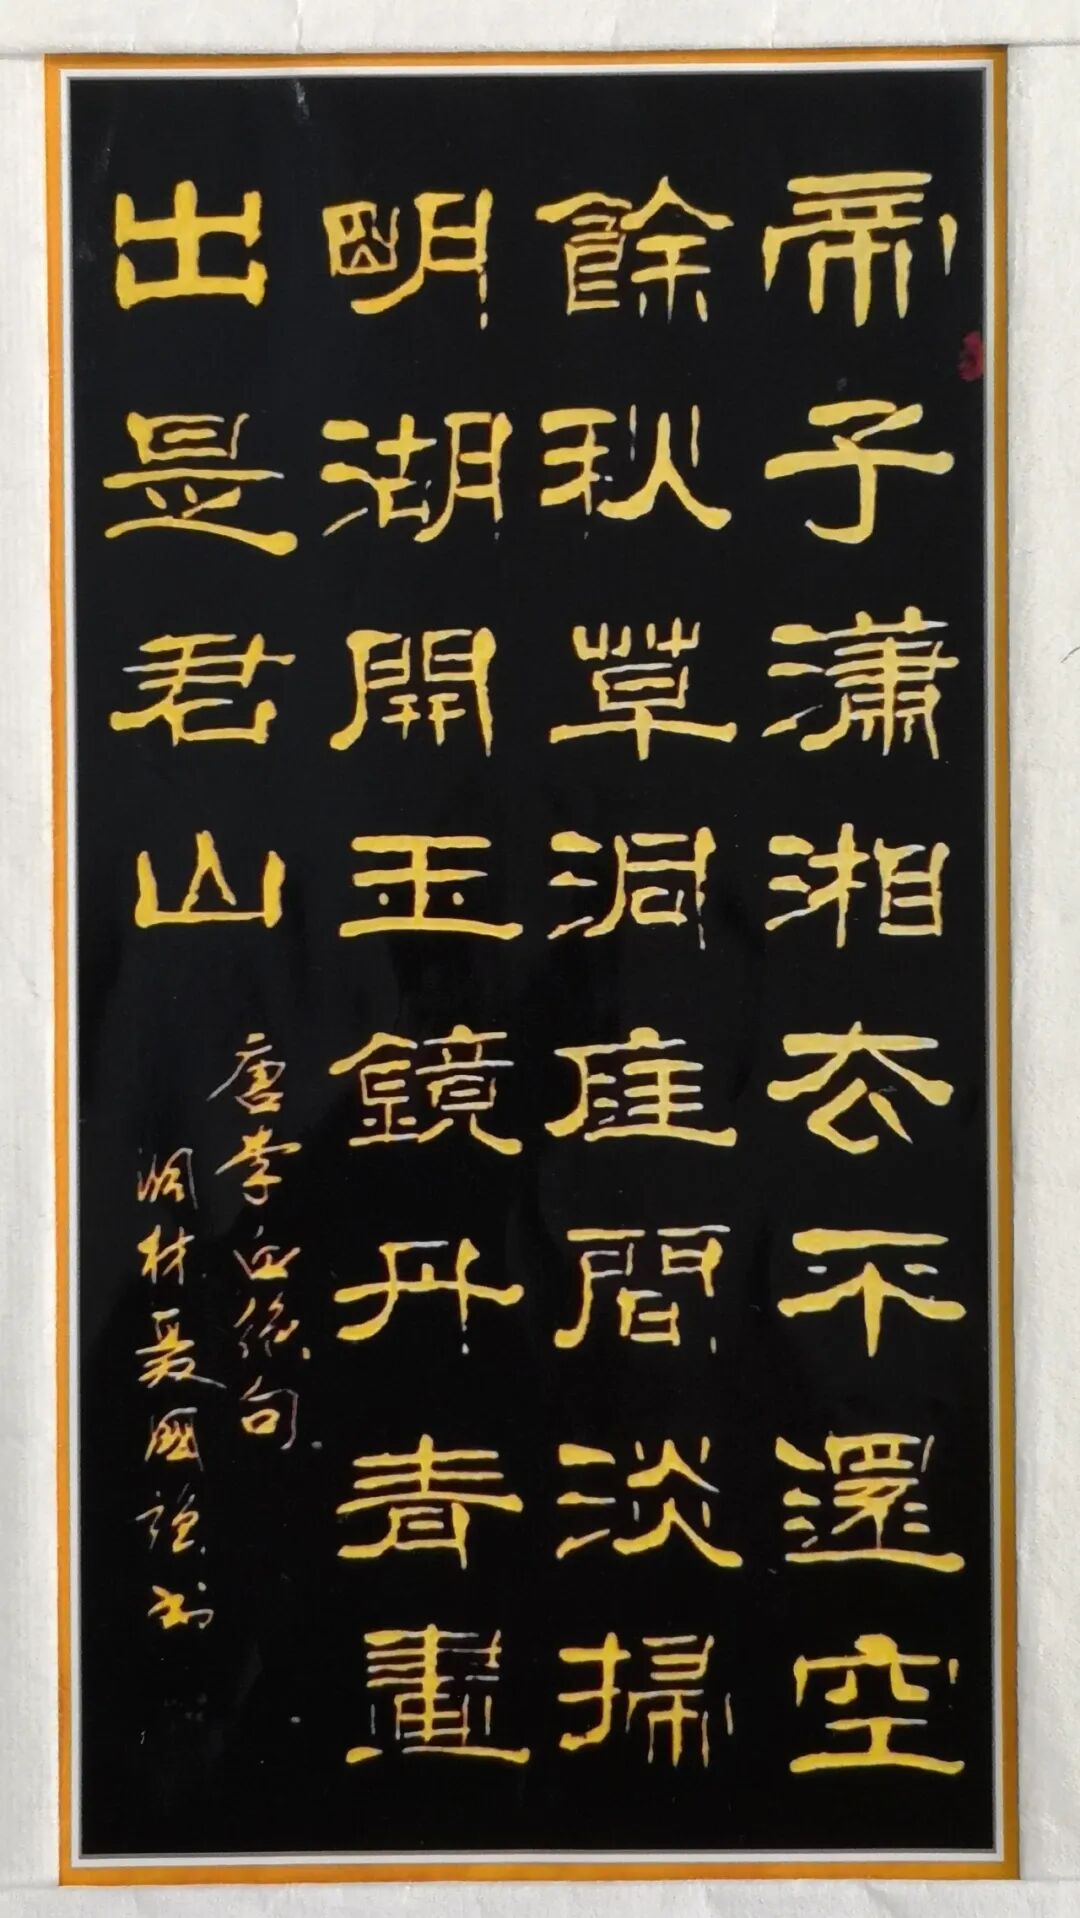 帝子瀟湘去不還空
餘秋草洞庭間淡掃
明湖開玉鏡丹青畫
出是君山
唐李白絶句
聂國强书